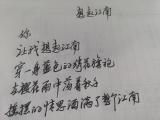 想起江南
你
让我想起江南
穿一身蓝色的碎花旗袍
衣摆在雨中荡着秋千
摇摆的情思洒满了整个江南